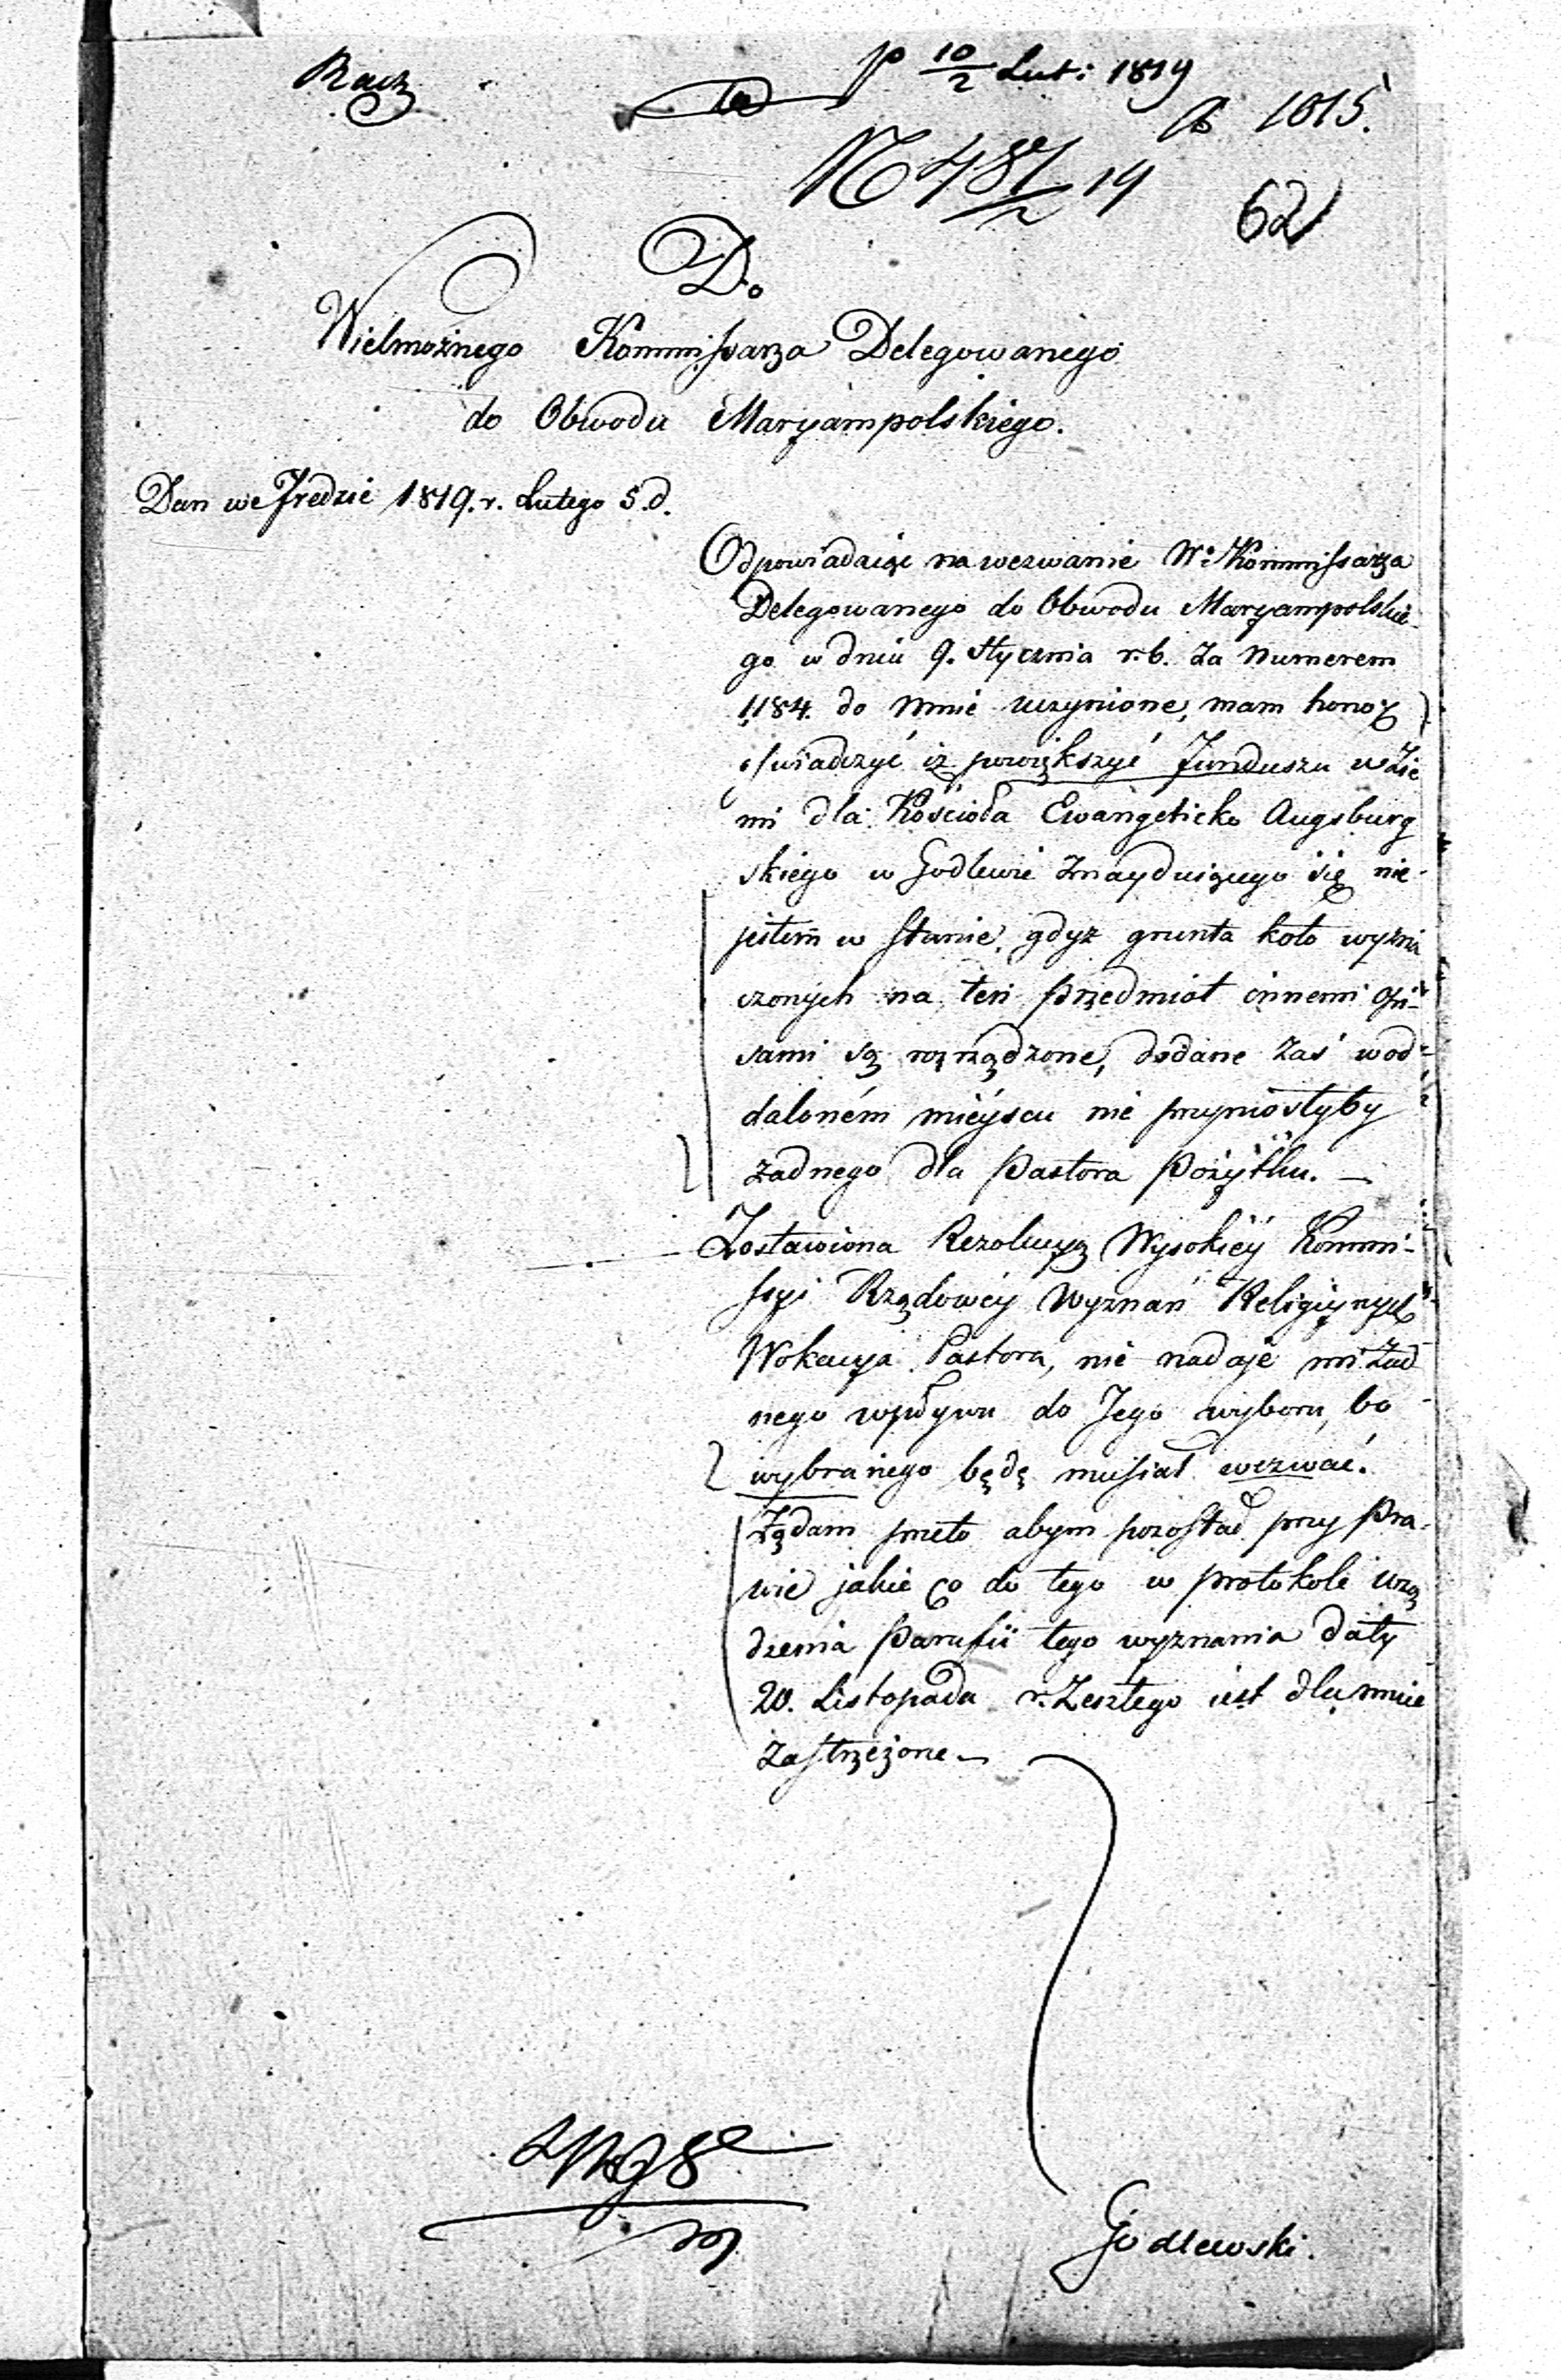 Racz
p 10/2 Lut: 1819
1015.
N 487/2 19
62
Do
Wielmożnego Kommissarza Delegowanego
do Obwodu Maryampolskiego.
Dan we Fredzie 1819. r. Lutego 5. d.
Odpowiadaiąc na wezwanie W: Kommissarza
Delegowanego do Obwodu Maryampolskie-
go w dniu 9. Stycznia r. b. za Numerem
1184. do mnie uczynione, mam honor
oświadczyć iż powiększyć funduszu w Zie
mi dla Kościoła Ewangelicko Augsburg
skiego w Godlewie znayduiącego się nie-
jestem w stanie, gdyż grunta koło wyzna
czonych na ten przedmiot innemi
sami są rozrządzone, dodane zaś w od-
daloném mieyscu nie przyniosłyby
żadnego dla Pastora Pożytku. —
Zostawiona Rezolucyą Wysokiéy Kommi-
ssyi Rządowéy Wyznań Religiynych
Wokacya Pastora, nie nadaje mi żad-
nego wpływu do Jego wyboru, bo
wybranego będę musiał wezwać.
Żądam przeto abym pozostał przy Pra-
wie jakie co do tego w protokole urzą
dzenia Parafii tego wyznania daty
20. Listopada r. Zeszłego iest dla mnie
zastrzeżone —
Godlewski.